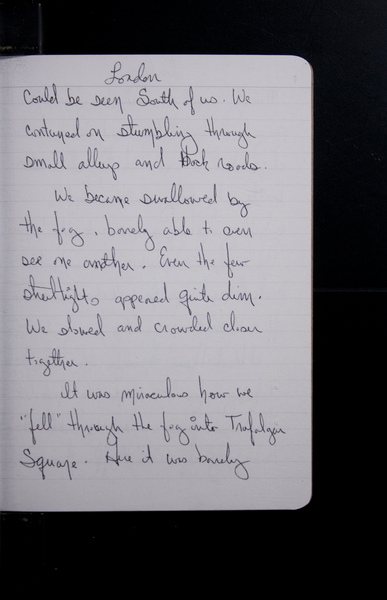 London
Could be seen South of us. We
contuned on stumbling through
small alleys and Back roads.
We became swallowed by
the fog, barely able to even
see one another. Even the few
streetlights appeared quite dim.
We slowed and crowded closer
together.
It was miraculous how we
"fell" through the fog into Trafalgar
Square. Here it was barely